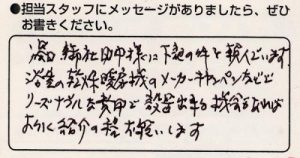 ●担当スタッフにメッセージがありましたら、ぜひ
お書きください。
浴室の乾燥暖房機のメーカーキャンペンなどで
リーズナブルな費用で設置出来る機会があれば
よろしく紹介の程お願いします